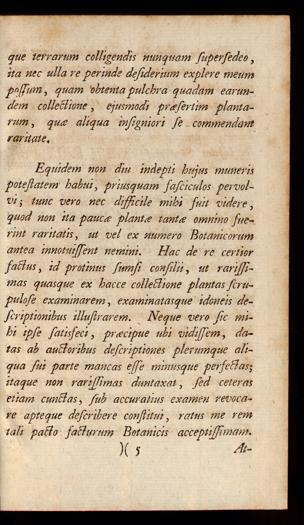 que terrarum colligendis nunquam ſuperſedeo,
ita nec ulla re perinde deſiderium explere meum
poſſum, quam obtenta pulchra quadam earun-
dem collectione, ejusmodi præſertim planta-
rum, quæ aliqua inſigniori ſe commendant
raritate.
Equidem non diu indepti hujus muneris
poteſtatem habui, priusquam faſciculos pervol-
vi; tunc vero nec difficile mihi fuit videre,
quod non ita paucæ plantæ tantæ omnino fue-
rint raritatis, ut vel ex numero Botanicorum
antea innotuiſſent nemini. Hac de re certior
factus, id protinus ſumſi conſilii, ut rariſſi-
mas quasque ex hacce collectione plantas ſcru-
puloſe examinarem, examinatasque idoneis de-
ſcriptionibus illuſtrarem. Neque vero ſic mi-
hi ipſe ſatisfeci, præcipue ubi vidiſſem, da-
tas ab auctoribus deſcriptiones plerumque ali-
qua ſui parte mancas eſſe minusque perfectas;
itaque non rariſſimas duntaxat, ſed ceteras
etiam cunctas, ſub accuratius examen revoca-
re apteque deſcribere conſtitui, ratus me rem
tali pacto facturum Botanicis acceptiſſimam.
)( 5 At-